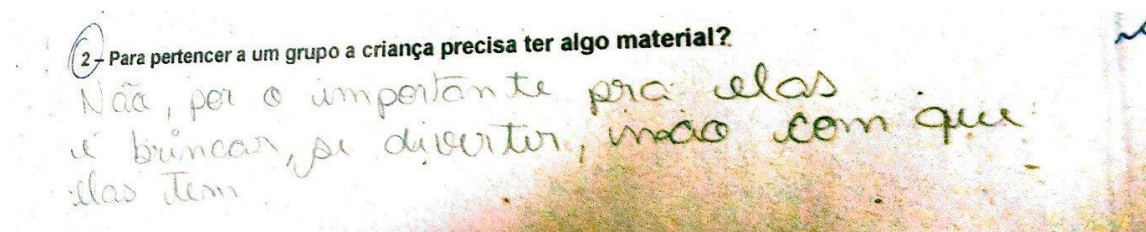 2 - Para pertencer a um grupo a criança precisa ter algo material?
Não, por o importante pra elas
é brincar, se divertir, não com que
elas tem